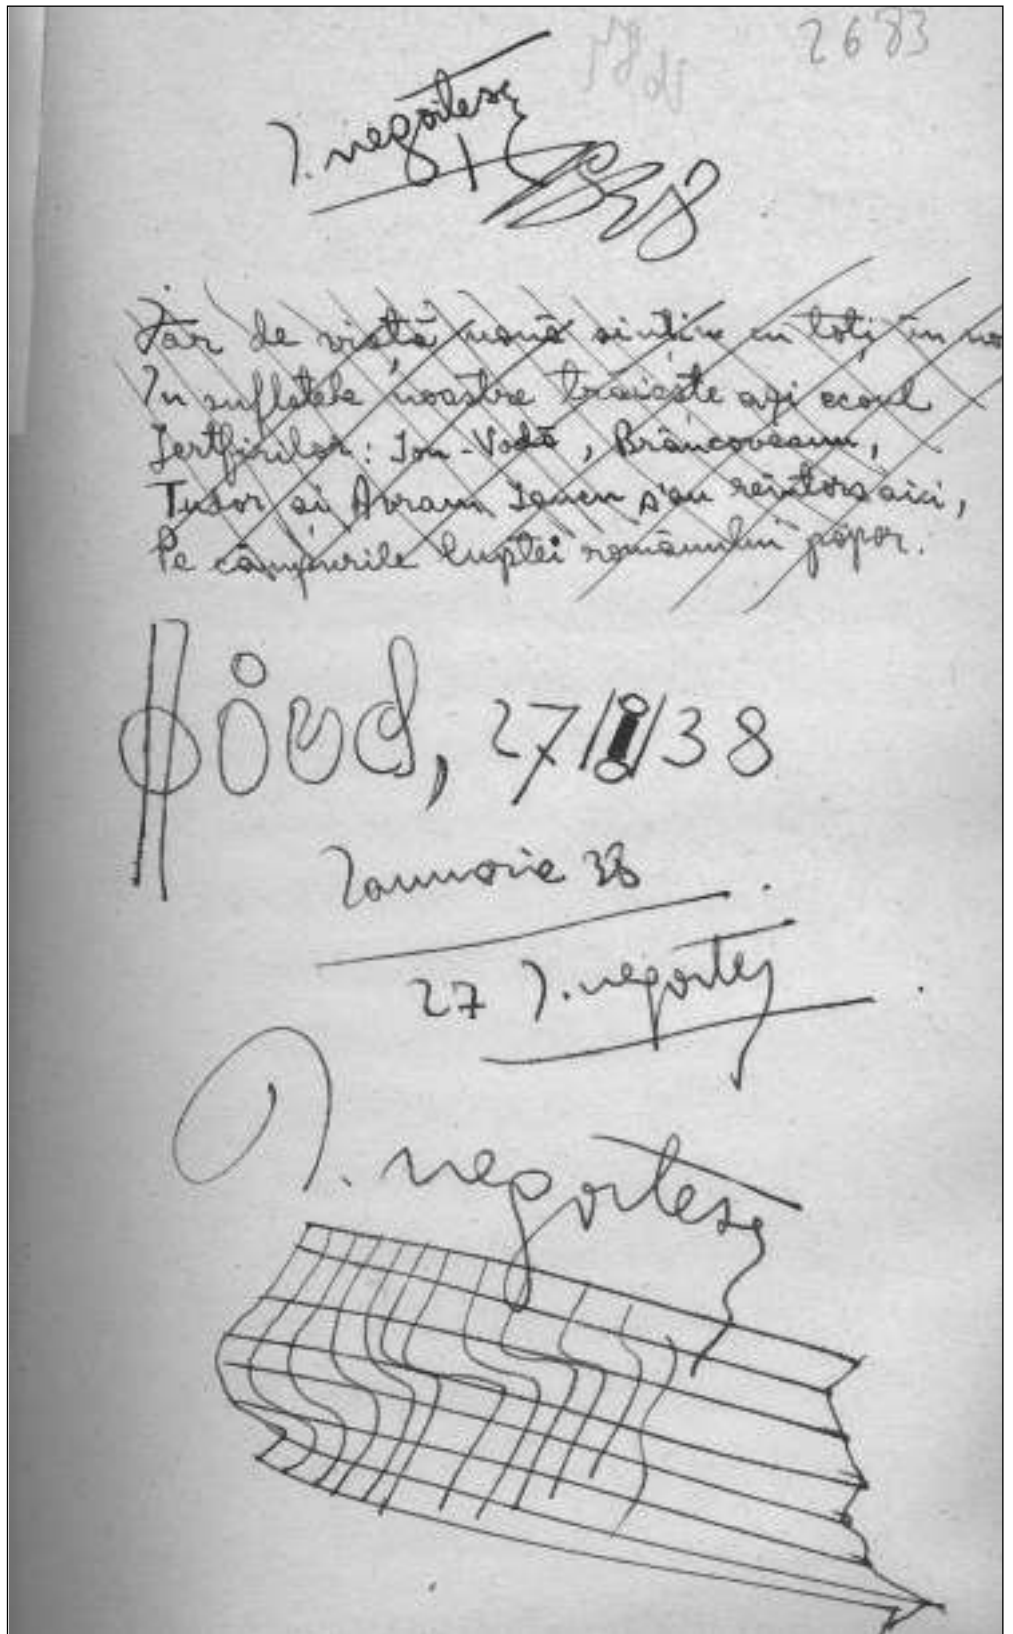 2683
I. negoițesc
Jar de viață nouă simțim cu toți în no
In sufletele noastre trăiește azi ecoul
Jertfirilor: Ion-Vodă, Brâncoveanu,
Tudor și Avram Iancu s'au reîntors aici,
Pe câmpurile luptei românului popor.
27/I/38
Ianuarie 38
27 I. negoițes
I. negoițesc